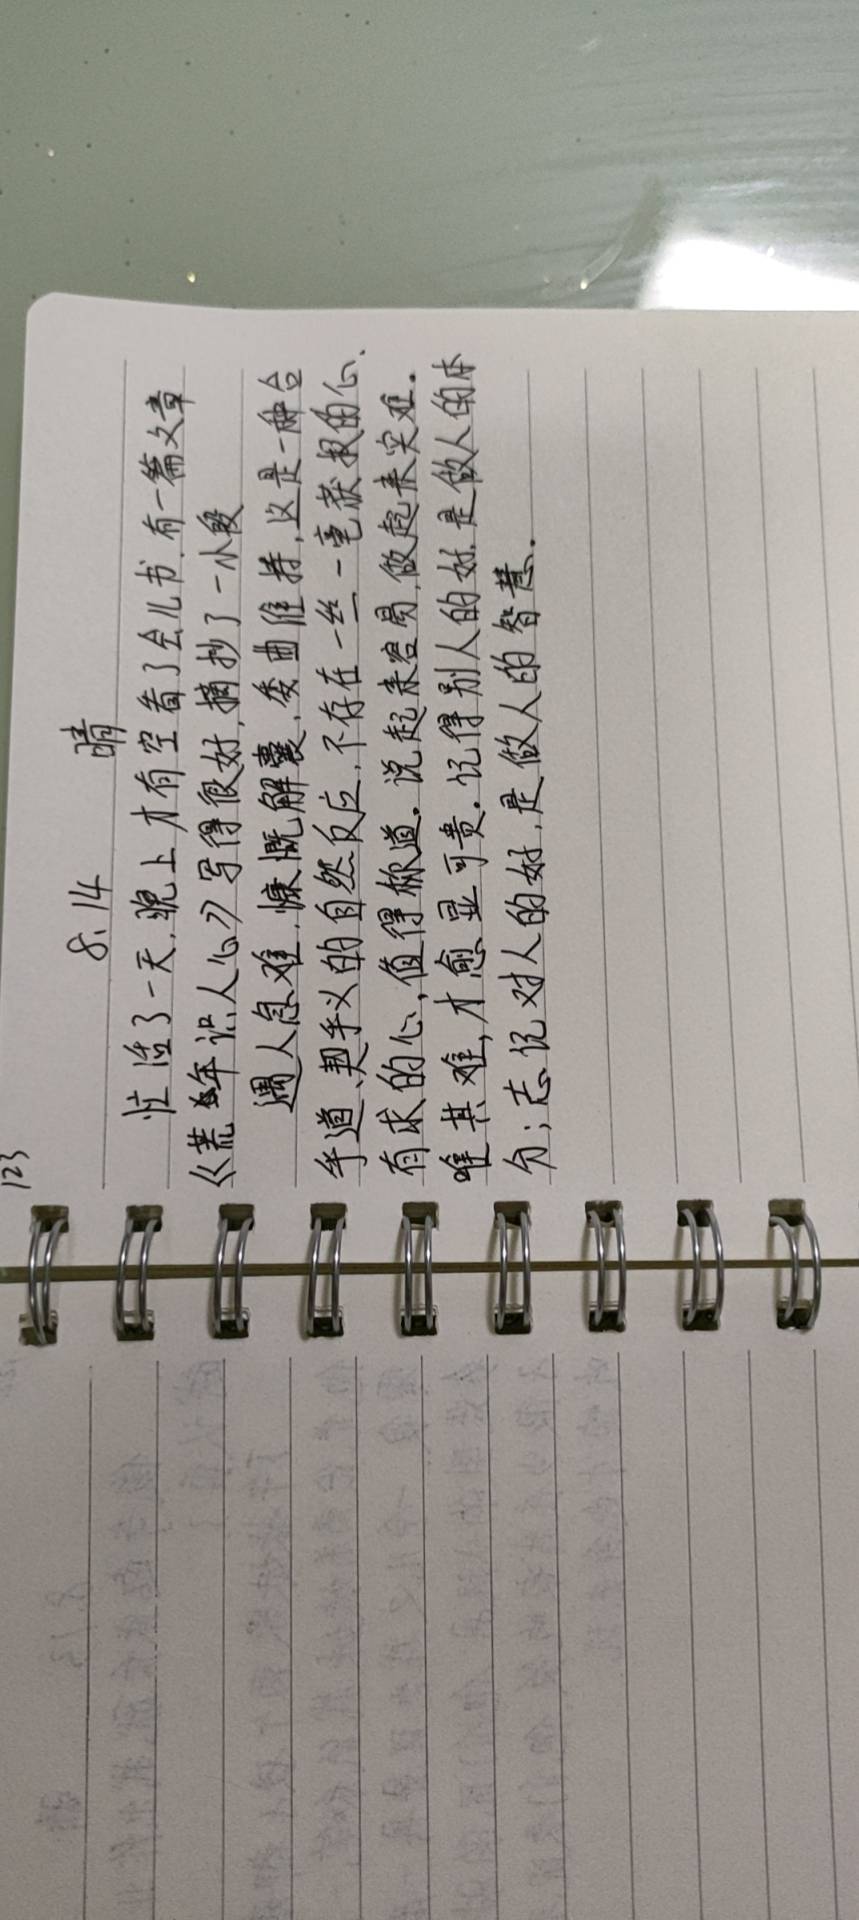 123
8.14 晴
忙活了一天,晚上才有空看了会儿书.有一篇文章
《荒年识人心》写得很好,摘抄了一小段
遇人急难,慷慨解囊、委曲维持,这是一种合
乎道、契乎义的自然反应,不存在一丝一毫获报的心.
有求的心,值得称道。说起来容易,做起来实难.
唯其难,才愈显可贵.记得别人的好.是做人的本
分;忘记对人的好,是做人的智慧.